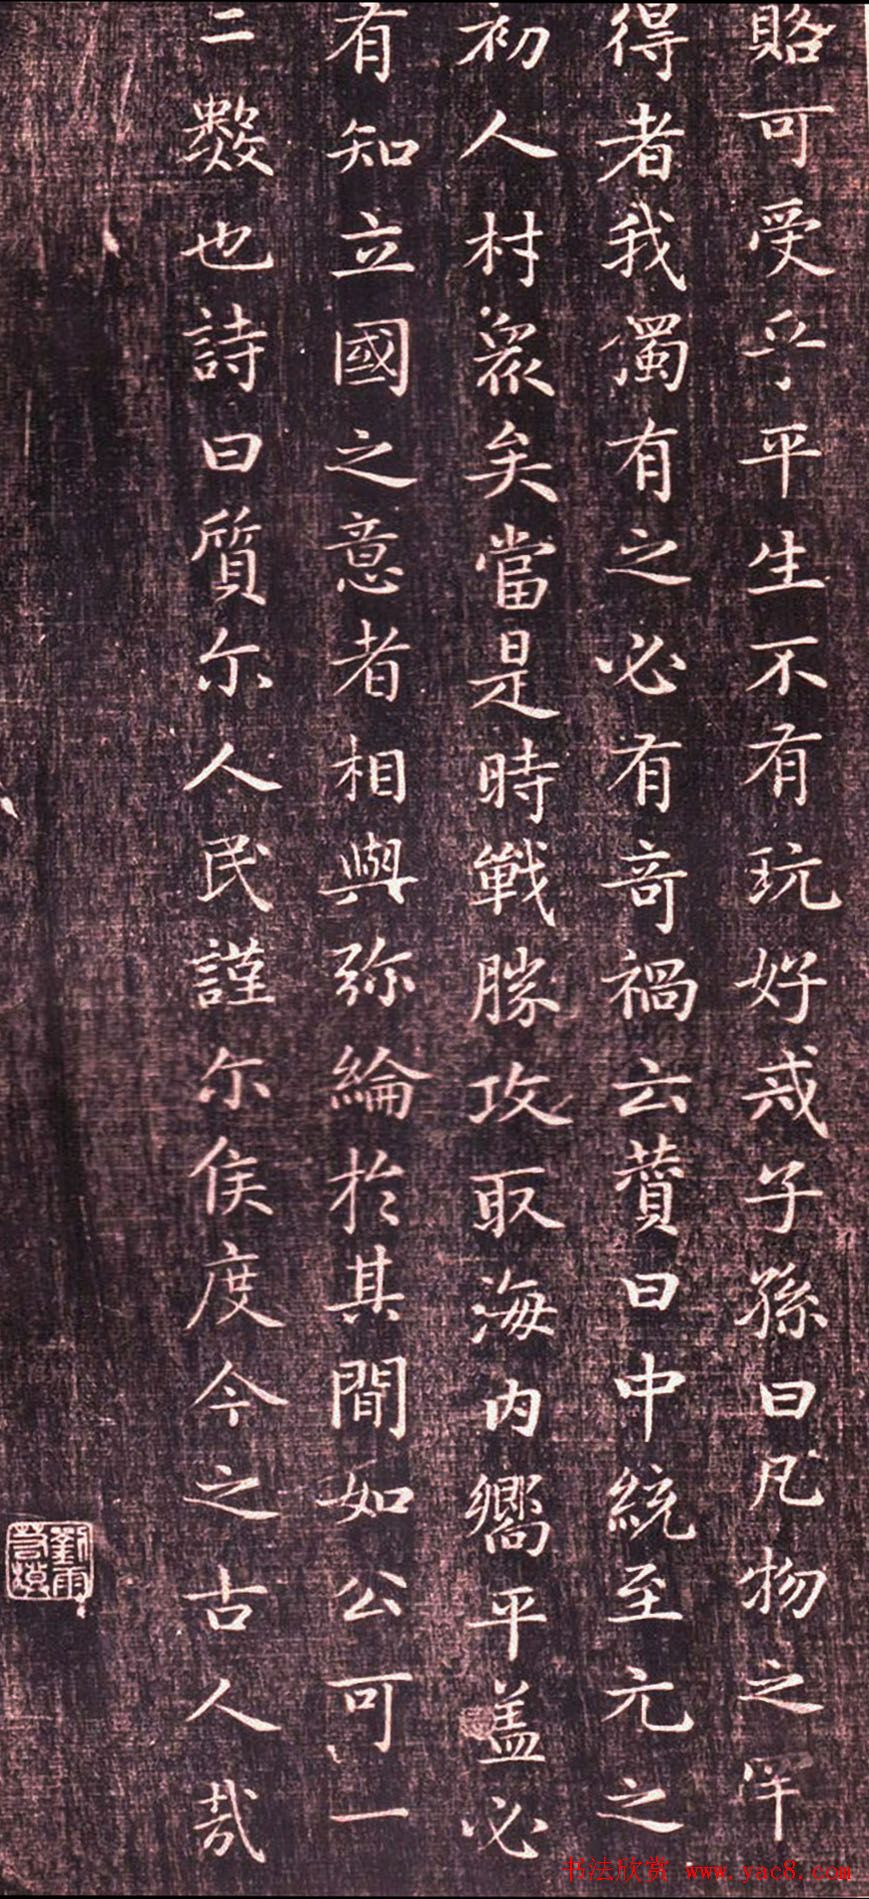 賂可受乎平生不有玩好戒子孫曰凡物之罕
得者我獨有之必有奇禍云贊曰中統至元之
初人材衆矣當是時戰勝攻取海内嚮平盖必
有知立國之意者相與弥綸於其間如公可一
二數也詩曰質尔人民謹尔侯度今之古人哉
书法欣赏 www.yac8.com